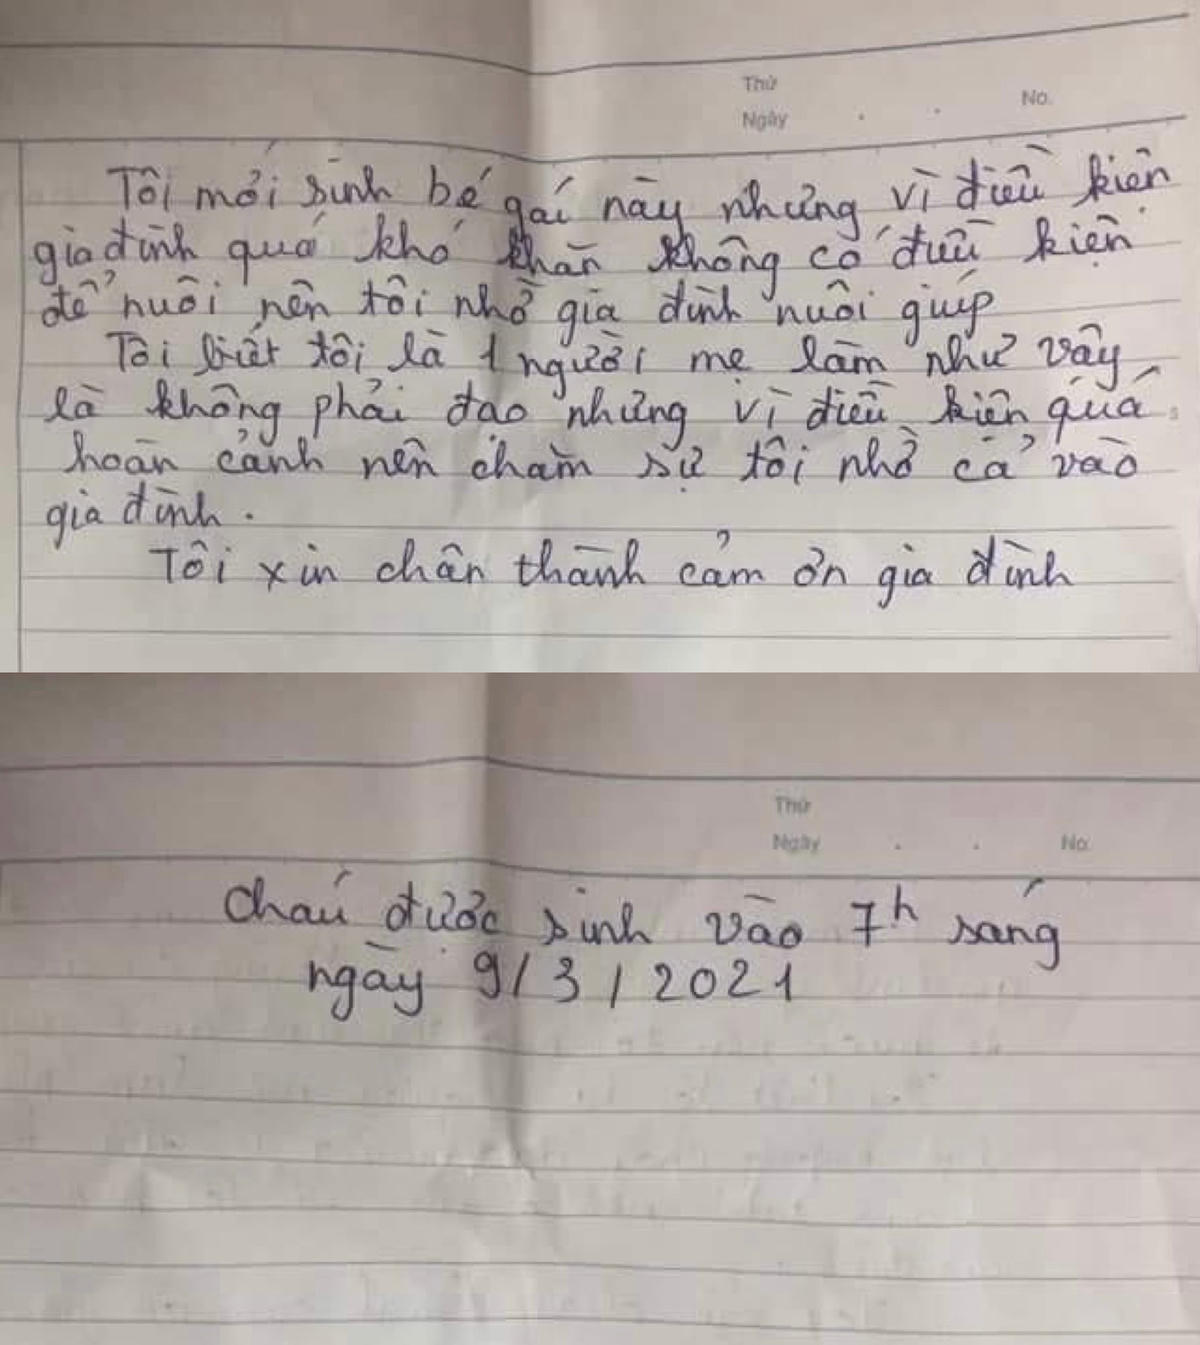 Thứ
Ngày . . No.
Tôi mới sinh bé gái này nhưng vì điều kiên
gia đình quá khó khăn không có điều kiện
để nuôi nên tôi nhờ gia đình nuôi giúp
Tôi biết tôi là 1 người mẹ làm như vậy
là không phải đạo nhưng vì điều kiên quá
hoàn cảnh nên chăm sự tôi nhờ cả vào
gia đình.
Tôi xin chân thành cảm ơn gia đình
Thứ
Ngày . . No.
Cháu được sinh vào 7h sáng
ngày 9/3/2021